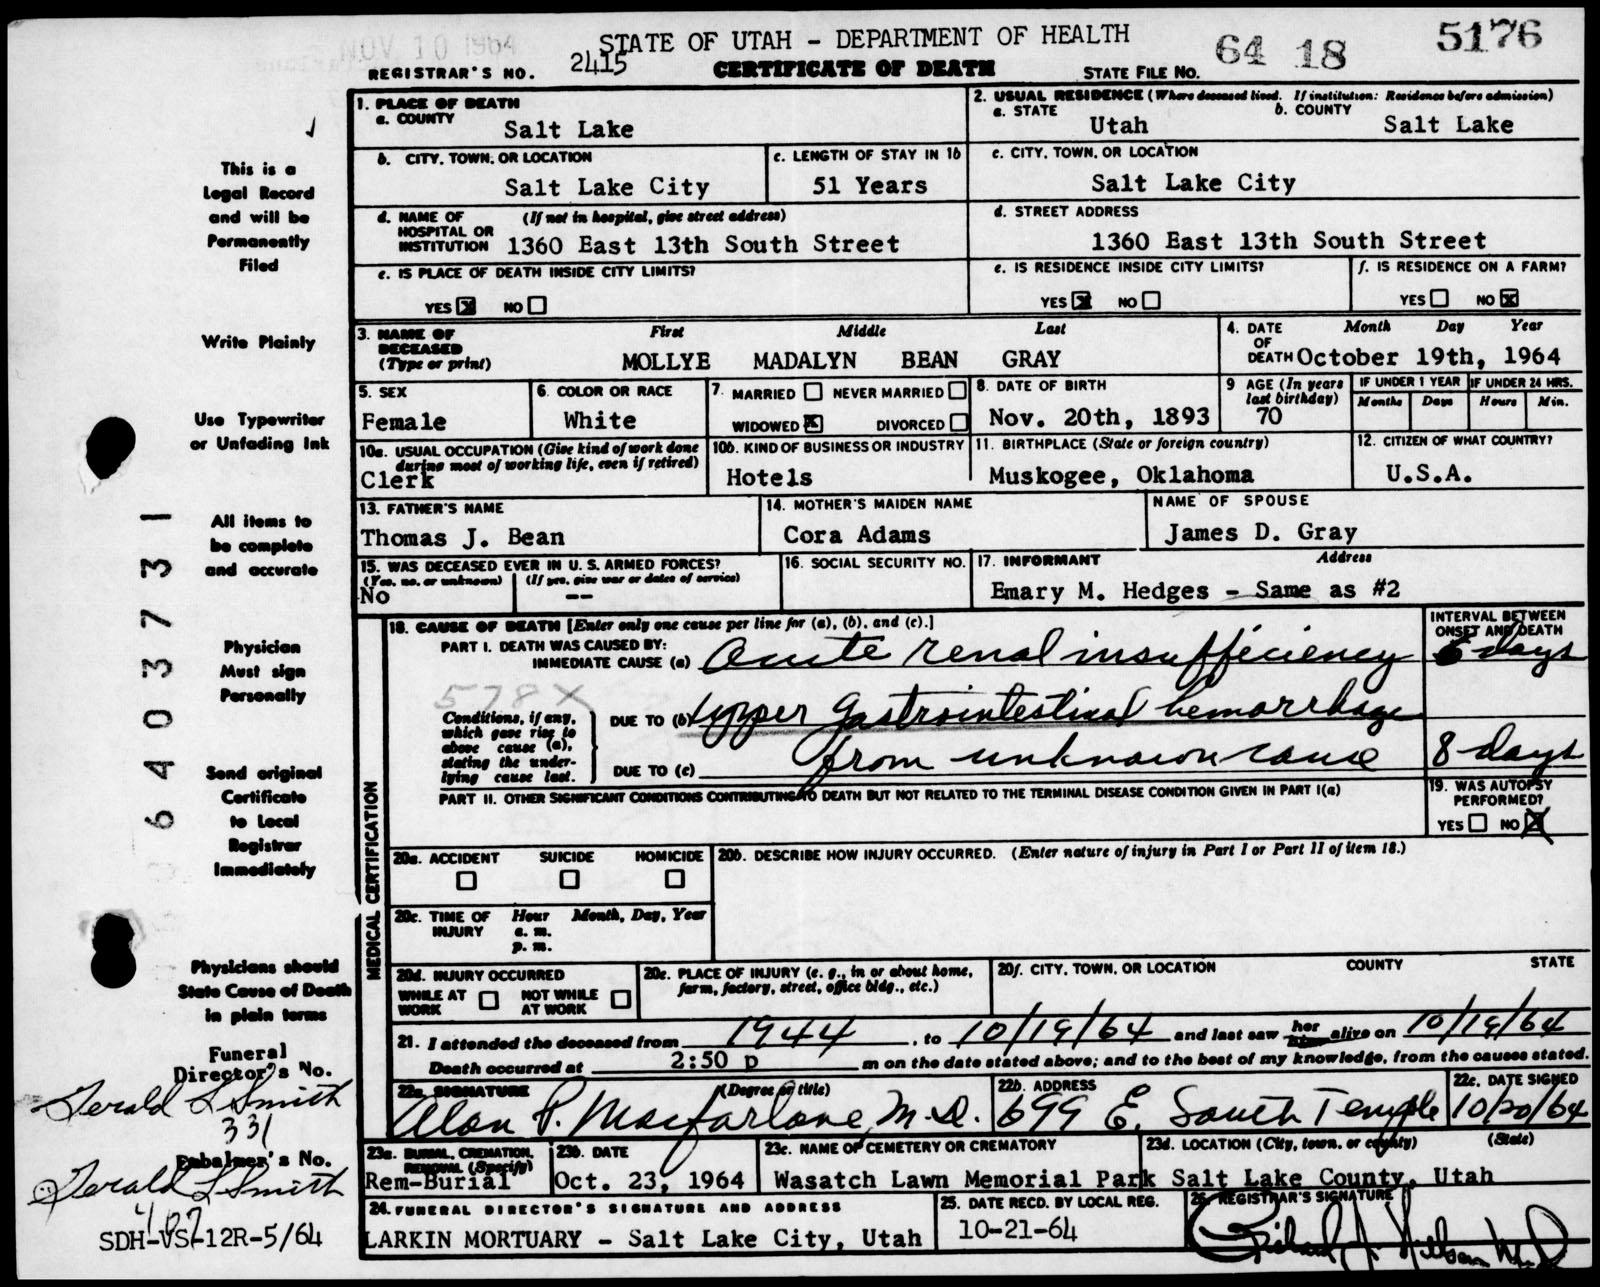 NOV 10 1964
STATE OF UTAH - DEPARTMENT OF HEALTH
64 18 5176
REGISTRAR'S NO. 2415 CERTIFICATE OF DEATH STATE FILE NO.
1. PLACE OF DEATH
a. COUNTY
Salt Lake
2. USUAL RESIDENCE (Where deceased lived. If institution: Residence before admission)
a. STATE b. COUNTY
Utah Salt Lake
b. CITY, TOWN, OR LOCATION
Salt Lake City
c. LENGTH OF STAY IN 1b
51 Years
c. CITY, TOWN, OR LOCATION
Salt Lake City
d. NAME OF HOSPITAL OR INSTITUTION (If not in hospital, give street address)
1360 East 13th South Street
d. STREET ADDRESS
1360 East 13th South Street
e. IS PLACE OF DEATH INSIDE CITY LIMITS?
YES X NO
e. IS RESIDENCE INSIDE CITY LIMITS?
YES X NO
f. IS RESIDENCE ON A FARM?
YES NO X
3. NAME OF DECEASED (Type or print)
First Middle Last
MOLLYE MADALYN BEAN GRAY
4. DATE OF DEATH Month Day Year
October 19th, 1964
5. SEX
Female
6. COLOR OR RACE
White
7. MARRIED NEVER MARRIED
WIDOWED X DIVORCED
8. DATE OF BIRTH
Nov. 20th, 1893
9 AGE (In years last birthday)
70
IF UNDER 1 YEAR IF UNDER 24 HRS.
Months Days Hours Min.
10a. USUAL OCCUPATION (Give kind of work done during most of working life, even if retired)
Clerk
10b. KIND OF BUSINESS OR INDUSTRY
Hotels
11. BIRTHPLACE (State or foreign country)
Muskogee, Oklahoma
12. CITIZEN OF WHAT COUNTRY?
U.S.A.
13. FATHER'S NAME
Thomas J. Bean
14. MOTHER'S MAIDEN NAME
Cora Adams
NAME OF SPOUSE
James D. Gray
15. WAS DECEASED EVER IN U. S. ARMED FORCES?
(Yes, no, or unknown) (If yes, give war or dates of service)
No --
16. SOCIAL SECURITY NO.
17. INFORMANT Address
Emary M. Hedges - Same as #2
MEDICAL CERTIFICATION
18. CAUSE OF DEATH [Enter only one cause per line for (a), (b), and (c).]
INTERVAL BETWEEN ONSET AND DEATH
PART I. DEATH WAS CAUSED BY:
IMMEDIATE CAUSE (a) Acute renal insufficiency days
578X
Conditions, if any, which gave rise to above cause (a), stating the underlying cause last.
DUE TO (b) Upper Gastrointestinal hemorrhage
DUE TO (c) from unknown cause 8 days
PART II. OTHER SIGNIFICANT CONDITIONS CONTRIBUTING TO DEATH BUT NOT RELATED TO THE TERMINAL DISEASE CONDITION GIVEN IN PART I(a)
19. WAS AUTOPSY PERFORMED?
YES NO X
20a. ACCIDENT SUICIDE HOMICIDE
20b. DESCRIBE HOW INJURY OCCURRED. (Enter nature of injury in Part I or Part II of item 18.)
20c. TIME OF INJURY Hour Month, Day, Year
a. m.
p. m.
20d. INJURY OCCURRED
WHILE AT WORK NOT WHILE AT WORK
20e. PLACE OF INJURY (e. g., in or about home, farm, factory, street, office bldg., etc.)
20f. CITY, TOWN, OR LOCATION COUNTY STATE
21. I attended the deceased from 1944, to 10/19/64 and last saw her alive on 10/19/64
Death occurred at 2:50 p m on the date stated above; and to the best of my knowledge, from the causes stated.
22a. SIGNATURE (Degree or title)
Alan P. Macfarlane, M.D.
22b. ADDRESS
699 E. South Temple
22c. DATE SIGNED
10/20/64
23a. BURIAL, CREMATION, REMOVAL (Specify)
Rem-Burial
23b. DATE
Oct. 23, 1964
23c. NAME OF CEMETERY OR CREMATORY
Wasatch Lawn Memorial Park
23d. LOCATION (City, town, or county) (State)
Salt Lake County, Utah
24. FUNERAL DIRECTOR'S SIGNATURE AND ADDRESS
LARKIN MORTUARY - Salt Lake City, Utah
25. DATE RECD. BY LOCAL REG.
10-21-64
26. REGISTRAR'S SIGNATURE
This is a
Legal Record
and will be
Permanently
Filed
Write Plainly
Use Typewriter
or Unfading Ink
All items to
be complete
and accurate
Physician
Must sign
Personally
Send original
Certificate
to Local
Registrar
Immediately
Physicians should
State Cause of Death
in plain terms
Funeral
Director's No.
Gerald L Smith
331
Embalmer's No.
Gerald L Smith
487
SDH-VS-12R-5/64
6403731